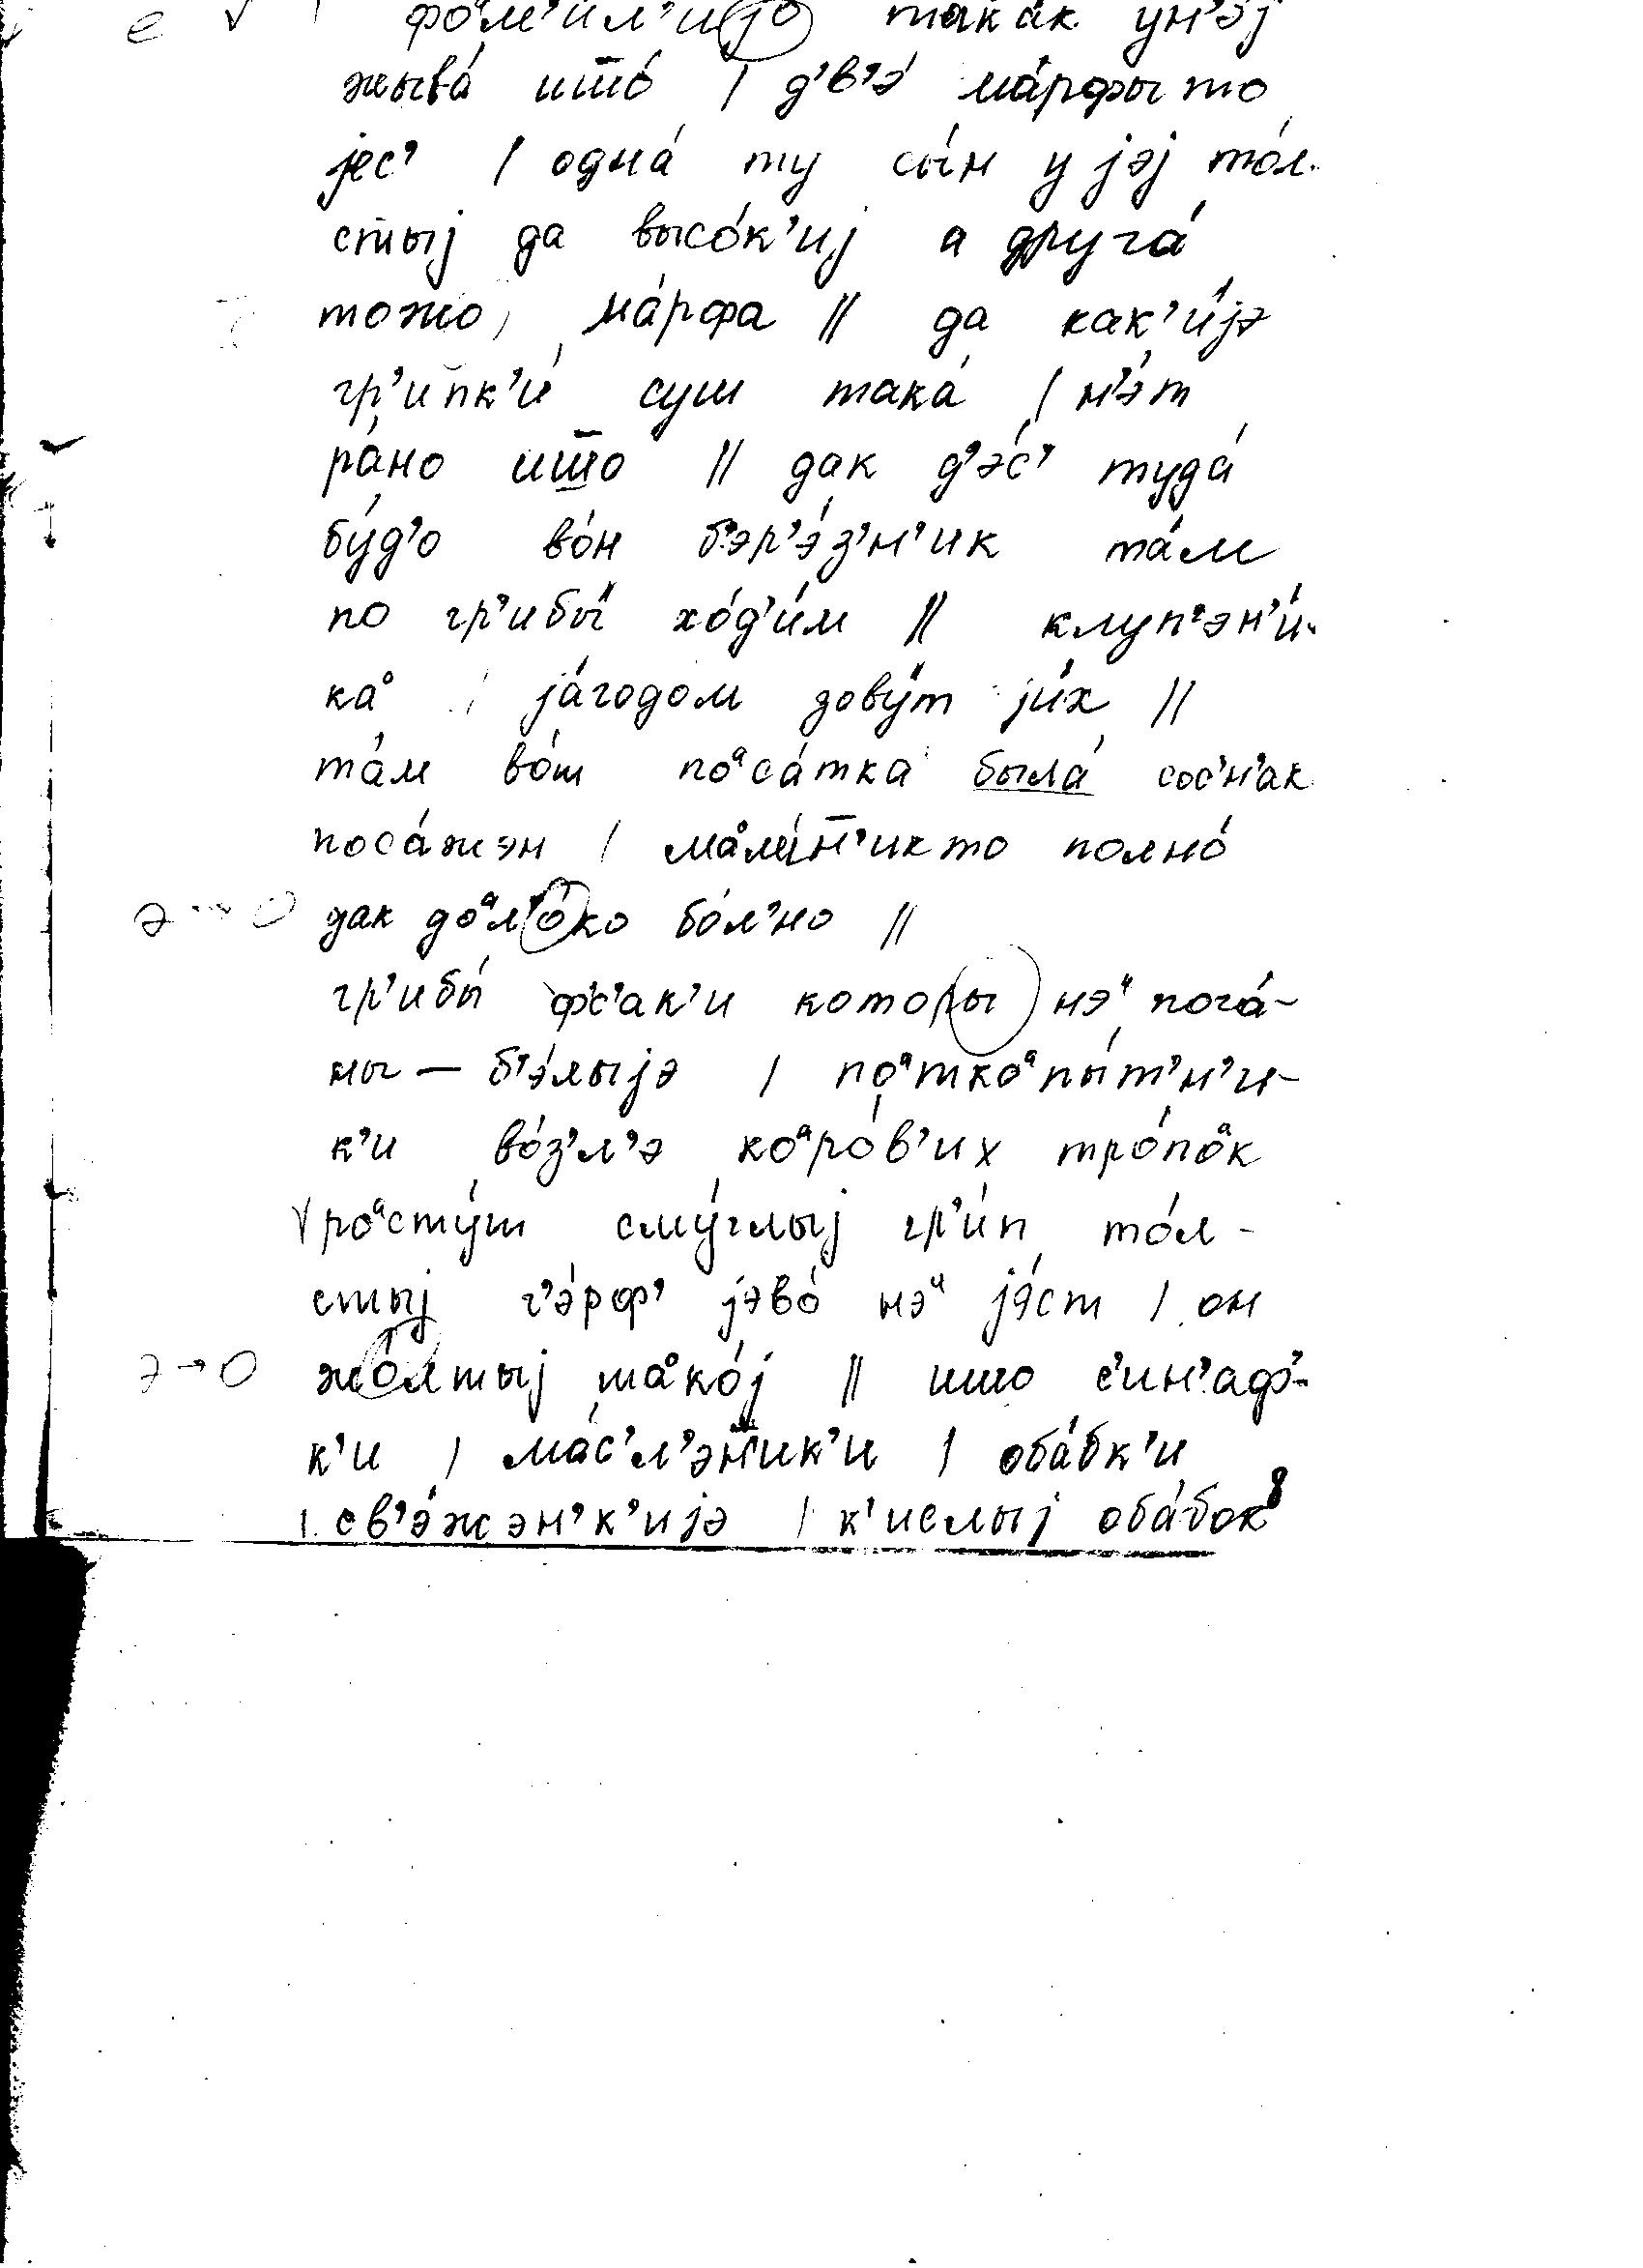 е √ | фоᵃм'ил'ијо такак ун'эј
жыва́ што́ | д'в'э́ ма́рфы то
јес' | одна́ ту сы́н у јэј то́л-
стыј да высо́к'иј а друга́
тожо, ма́рфа || да как'и́јэ
гр'ипк'и́ суш така́ | н'э́т
ра́но што || дак д'э́с' туда́
бу́д'о во́н б'эр'э́з'н'ик та́м
по гр'ибы́ хо́д'и́м || клуп'эн'и́-
каᵒ | ја́годом зову́т ји́х ||
та́м во́т поᵃса́тка была́ сос'н'ак
поса́жэн | маᵒли́н̄'икто полно́
э → о дак доᵃл'о́ко бо́л'но ||
гр'ибы́ ф'с'ак'и которы нэᵘ пога́-
ны — б'э́лыјэ | поᵃткоᵃпы́т'н'и-
к'и во́з'л'э коᵃро́в'их тро́поᵃк
√ роᵃсту́т сму́глыј гр'и́п то́л-
стыј ч'э́рф' јэво́ нэᵘ јэ́ст | он
э → о жо́лтыј таᵒко́ј || што с'ин'аф'-
к'и | ма́с'л'эн̄'ик'и | оба́бк'и
| св'э́жэн'к'ијэ | к'ислыј оба́бок